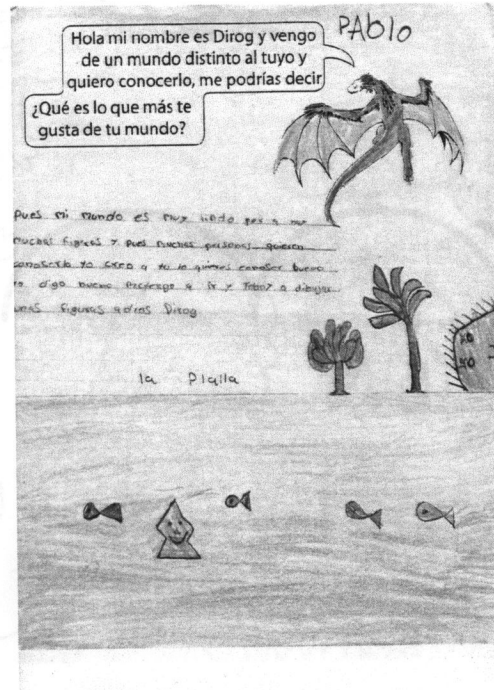 PAblo
Hola mi nombre es Dirog y vengo
de un mundo distinto al tuyo y
quiero conocerlo, me podrías decir
¿Qué es lo que más te
gusta de tu mundo?
pues mi mundo es muy lindo
muchas figuras y pues muchas personas quieren
conoserlo yo creo q tu lo quieres conoser bueno
digo bueno q ir y a dibujar
unas figuras adios Dirog
la Plalla
50
50